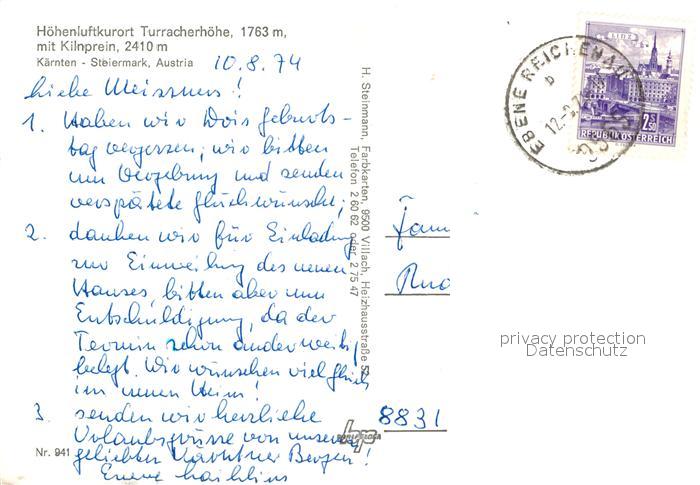 Höhenluftkurort Turracherhöhe, 1763 m,
mit Kilnprein, 2410 m
Kärnten - Steiermark, Austria
10.8.74
Liebe Meissners!
1. Haben wir Doris Geburts-
tag vergessen; wir bitten
um Vergebung und senden
verspätete Glückwünsche;
2. danken wir für Einladung
zur Einweihung des neuen
Hauses, bitten aber um
Entschuldigung, da der
Termin schon anderweitig
belegt. Wir wünschen viel Glück
im neuen Heim!
3. senden wir herzliche
Urlaubsgrüsse von unseren
geliebten Kärntner Bergen!
Nr. 941
H. Steinmann, Farbkarten, 9500 Villach, Heizhausstraße
Telefon 2 60 62 oder 2 75 47
Fam
8831
EBENE REICHENAU
b
LINZ
2.50
REPUBLIK ÖSTERREICH
privacy protection
Datenschutz